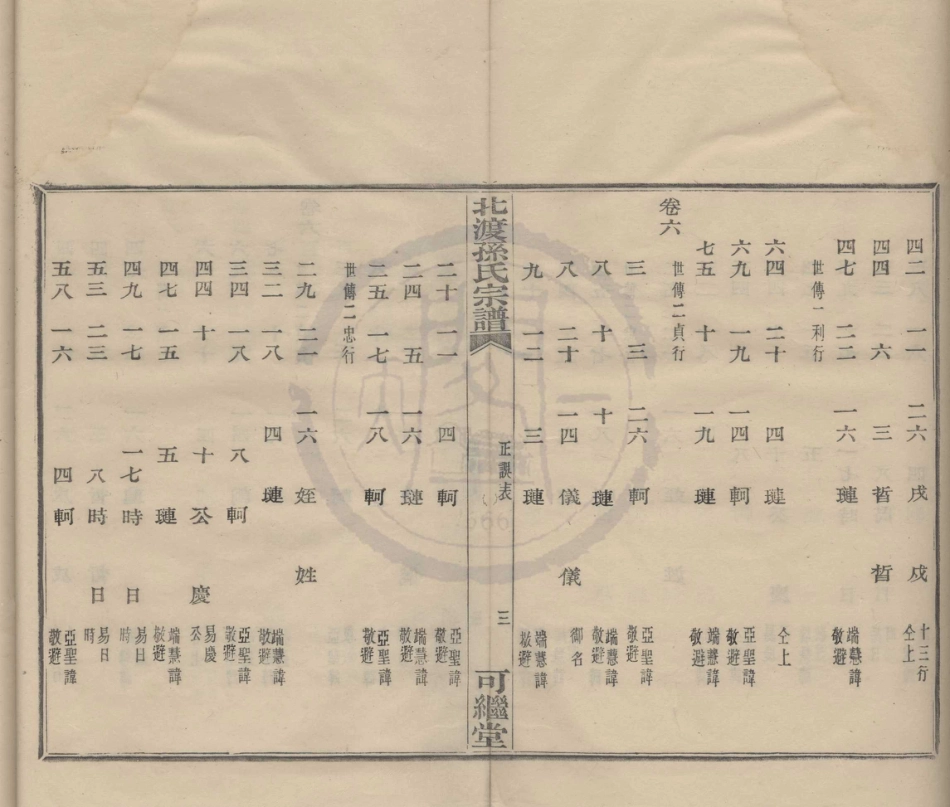 四二 一一 二六 戌 戍 十三行仝上
四四 六 三 晳 晢 
四七 二二 一六 璉 端慧諱敬避
世傳一利行
六四 二十 四 璉 仝上
六九 一九 一四 軻 亞聖諱敬避
七五 十 一九 璉 端慧諱敬避
卷六 世傳二貞行
三 三 二六 軻 亞聖諱敬避
八 十 十 璉 端慧諱敬避
八 二十 一四 儀 儀 御名
九 一二 三 璉 端慧諱敬避
北渡孫氏宗譜 正誤表 三 可繼堂
二十 一一 四 軻 亞聖諱敬避
二四 五 一六 璉 端慧諱敬避
二五 一七 一八 軻 亞聖諱敬避
世傳二忠行
二九 二一 一六 姪 姓
三二 一八 四 璉 端慧諱敬避
三四 一八 八 軻 亞聖諱敬避
四四 十 十 公 慶 易慶公
四七 一五 五 璉 端慧諱敬避
四九 一七 一七 時 日 易日時
五三 二三 八 時 日 易日時
五八 一六 四 軻 亞聖諱敬避